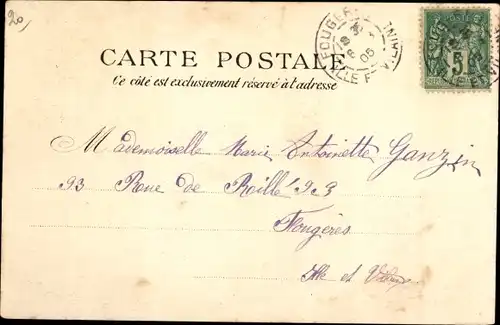 20,
FOUGÈRES
ILLE ET VILAINE
05
POSTE
5
CARTE POSTALE
Ce côté est exclusivement réservé à l'adresse
Mademoiselle Marie Antoinette Ganzin
93 Rue de Rillé 93
Fougères
Ille et Vilaine